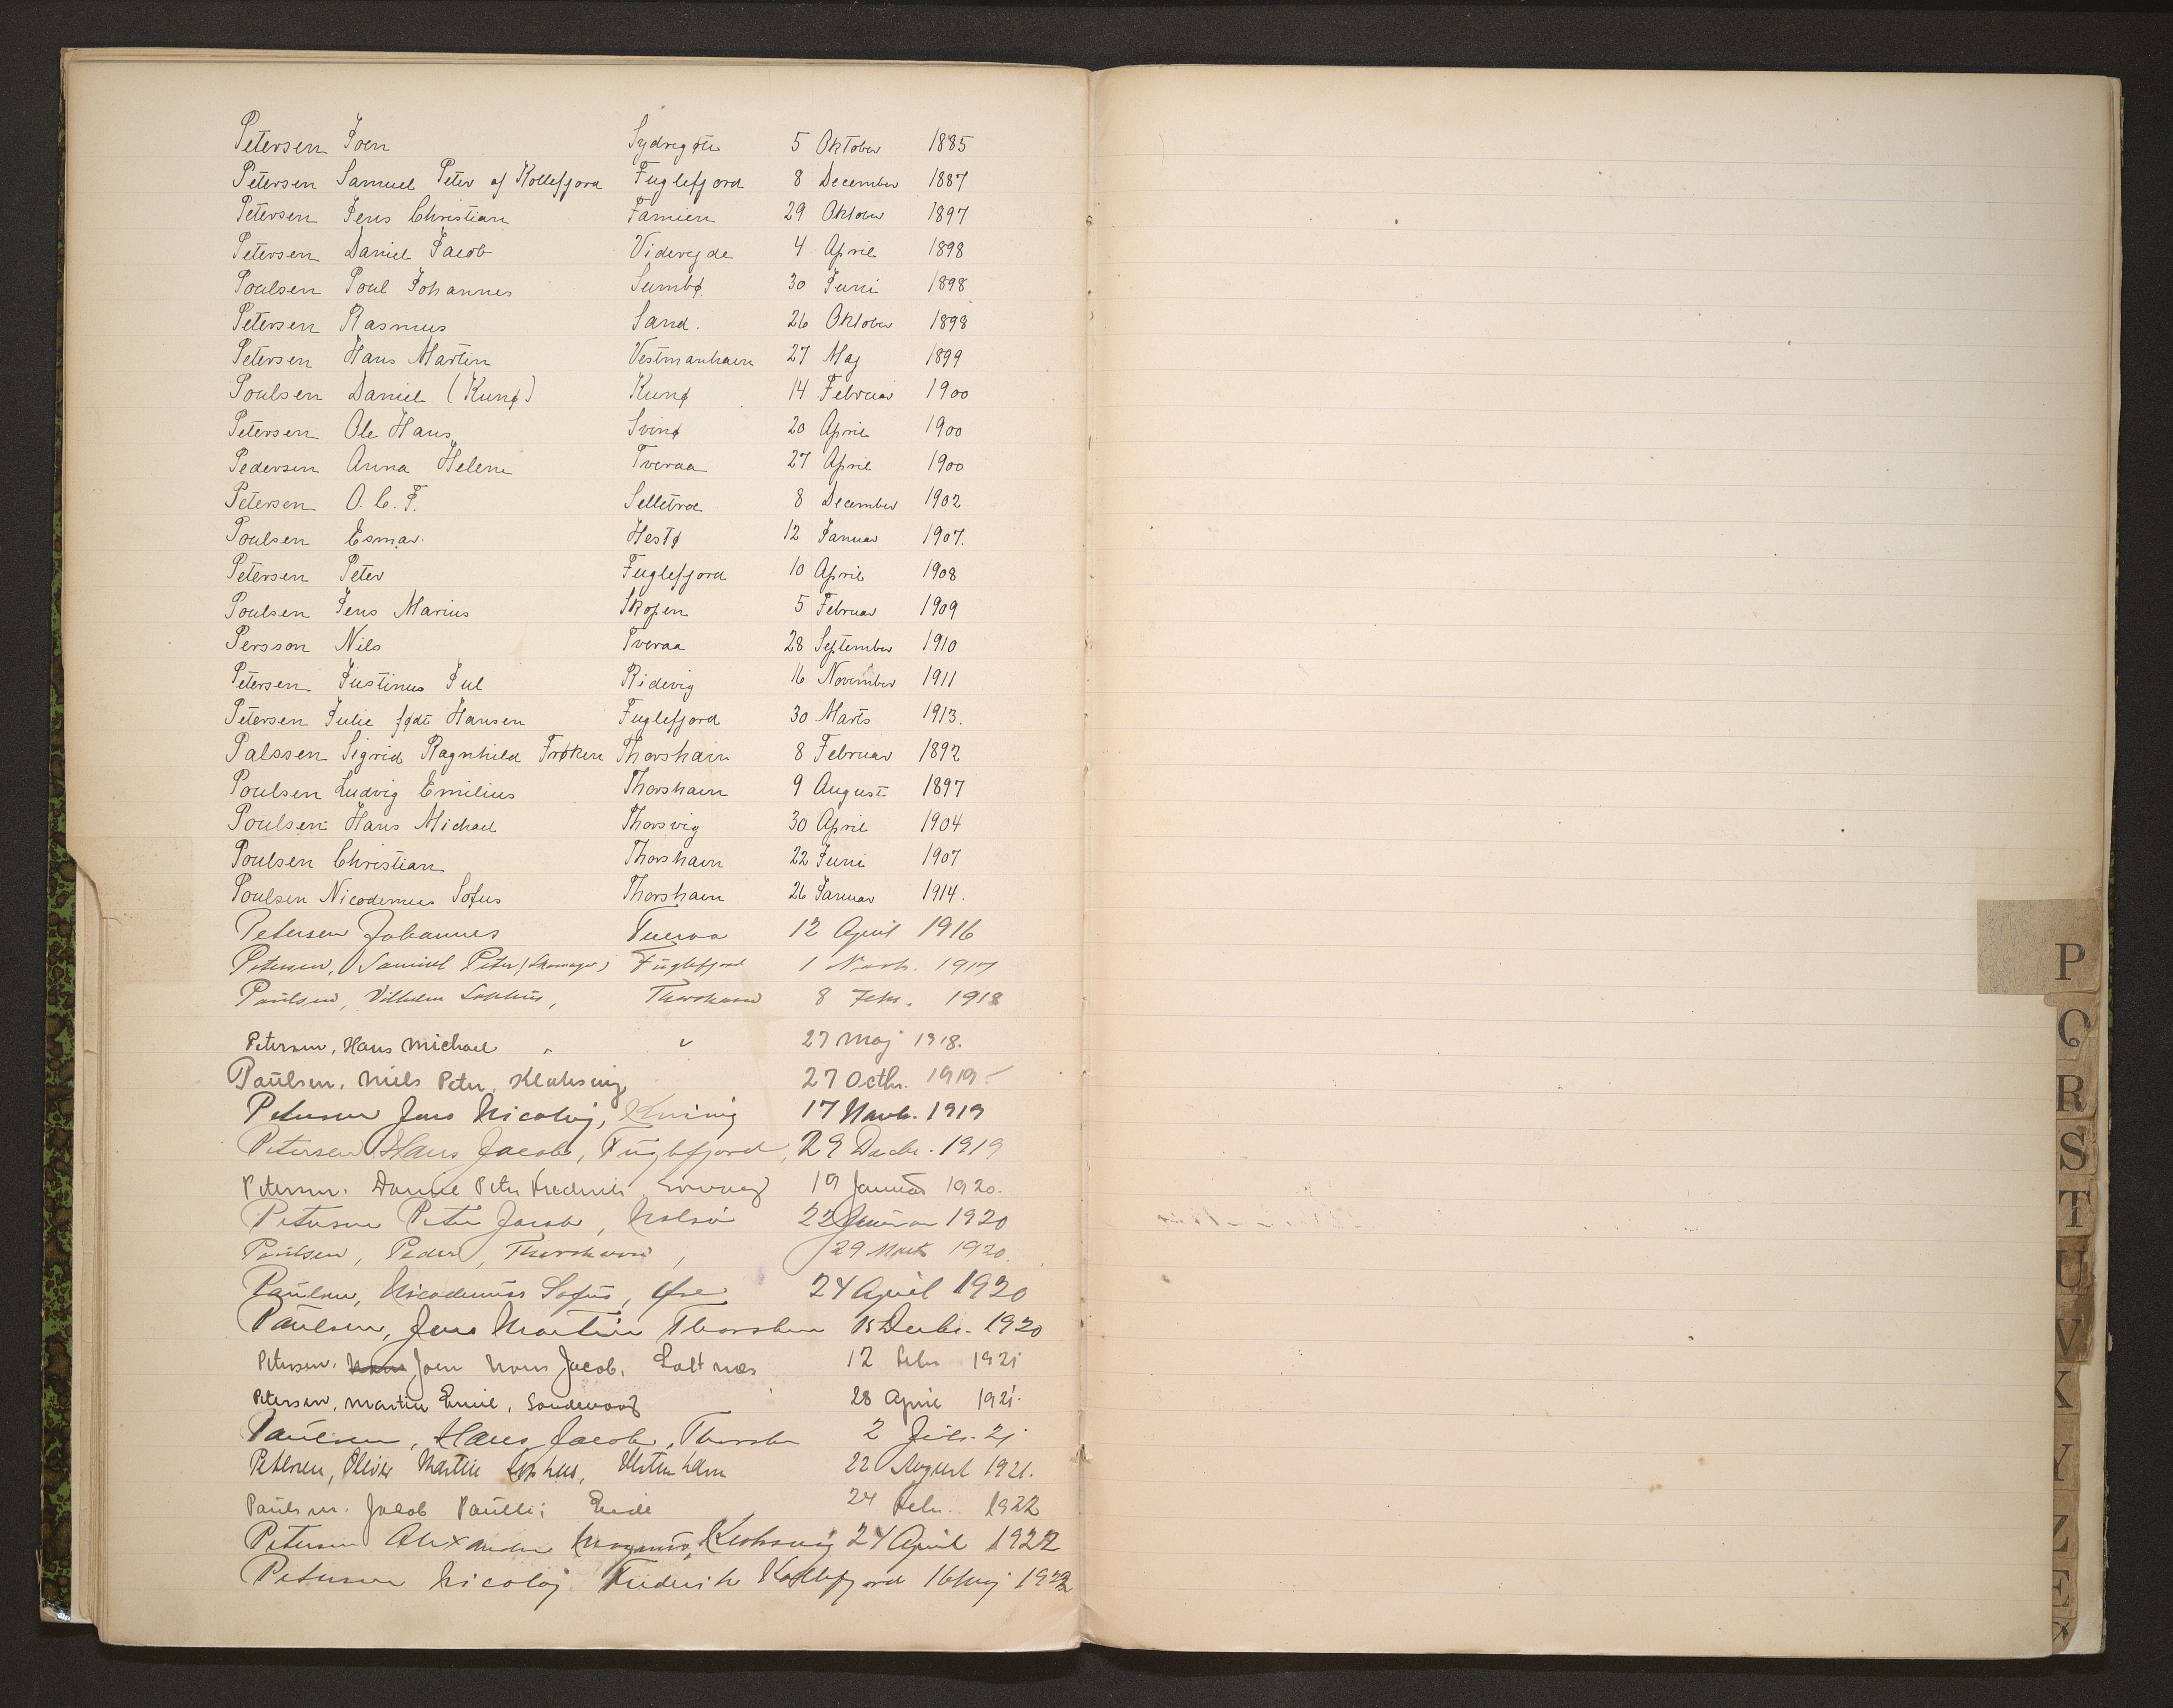 Petersen Joen Sydregøte 5 Oktober 1885
Petersen Samuel Peter af Kollefjord Fuglefjord 8 December 1887
Petersen Jens Christian Famien 29 Oktober 1897
Petersen Daniel Jacob Videregde 4 April 1898
Poulsen Poul Johannes Sumbø 30 Juni 1898
Petersen Rasmus Sand. 26 Oktober 1898
Petersen Hans Martin Vestmanhavn 27 Maj 1899
Poulsen Daniel (Kunø) Kunø 14 Februar 1900
Petersen Ole Hans Svinø 20 April 1900
Pedersen Anna Helene Tveraa 27 April 1900
Petersen O. C. J. Selletræ 8 December 1902
Poulsen Esmar. Hestø 12 Januar 1907.
Petersen Peter Fuglefjord 10 April 1908
Poulsen Jens Marius Skopen 5 Februar 1909
Persson Nils Tveraa 28 September 1910
Petersen Justinus Jul Ridevig 16 November 1911
Petersen Julie født Hansen Fuglefjord 30 Marts 1913.
Palssen Sigrid Ragnhild Frøken Thorshavn 8 Februar 1892
Poulsen Ludvig Emilius Thorshavn 9 August 1897
Poulsen Hans Michael Thorsvig 30 April 1904
Poulsen Christian Thorshavn 22 Juni 1907
Poulsen Nicodemus Sofus Thorshavn 26 Januar 1914.
Petersen Johannes Tveraa 12 April 1916
Petersen, Samuel Peter (Skomager) Fuglefjord 1 Novb. 1917
Poulsen, Vilhelm Sophus, Thorshavn 8 Febr. 1918
Petersen, Hans Michael " " 27 Maj 1918.
Paulsen, Niels Peter, Klaksvig 27 Octbr. 1919
Petersen Jens Nicolaj, 17 Novb. 1919
Petersen Hans Jacob, Fuglefjord, 29 Decbr. 1919
Petersen. Daniel Peter Frederik 19 Januar 1920.
Petersen Peter Jacob, Nolsø 22 Januar 1920
Poulsen, Peder, Thorshavn, 29 Marts 1920.
Paulsen, Nicodemus Sofus, Øre 24 April 1920
Paulsen, Jens Martin Thorshavn 15 Decbr. 1920
Petersen. Joen Hans Jacob. Saltnæs 12 Febr 1921
Petersen, Martin Emil, Sandevaag 28 April 1921.
Paulsen, Hans Jacob, Thorshn 2 21
Petersen, Oliver Martin Sophus, 22 August 1921.
Paulsen. Jacob Paulli; Eide 24 Febr. 1922
Petersen Alexander Magnus, Klaksvig 24 April 1922
Petersen Nicolaj Frederik Kollefjord 16 Maj 1922
P
Q
R
S
T
U
V
X
Y
Z
Æ
Ø